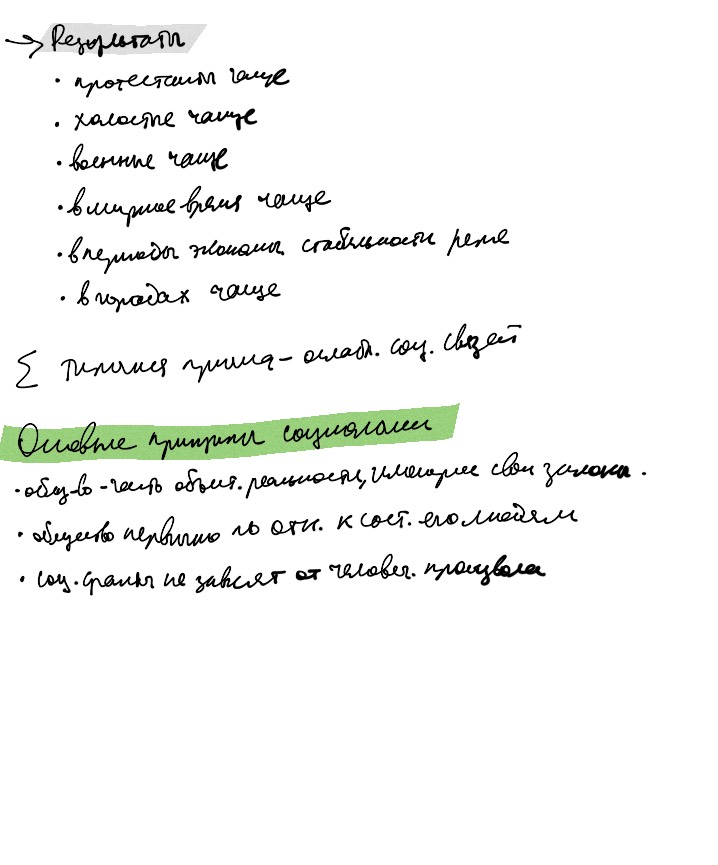 → Результаты
• протестанты чаще
• холостые чаще
• военные чаще
• в мирное время чаще
• в периоды эконом. стабильности реже
• в городах чаще
Σ типичная причина – ослабл. соц. связей
Основные принципы социологами
• общ-во - часть объект. реальности, имеющие свои законы.
• общество первично по отн. к сост. его людям
• соц. факты не зависят от человеч. произвола